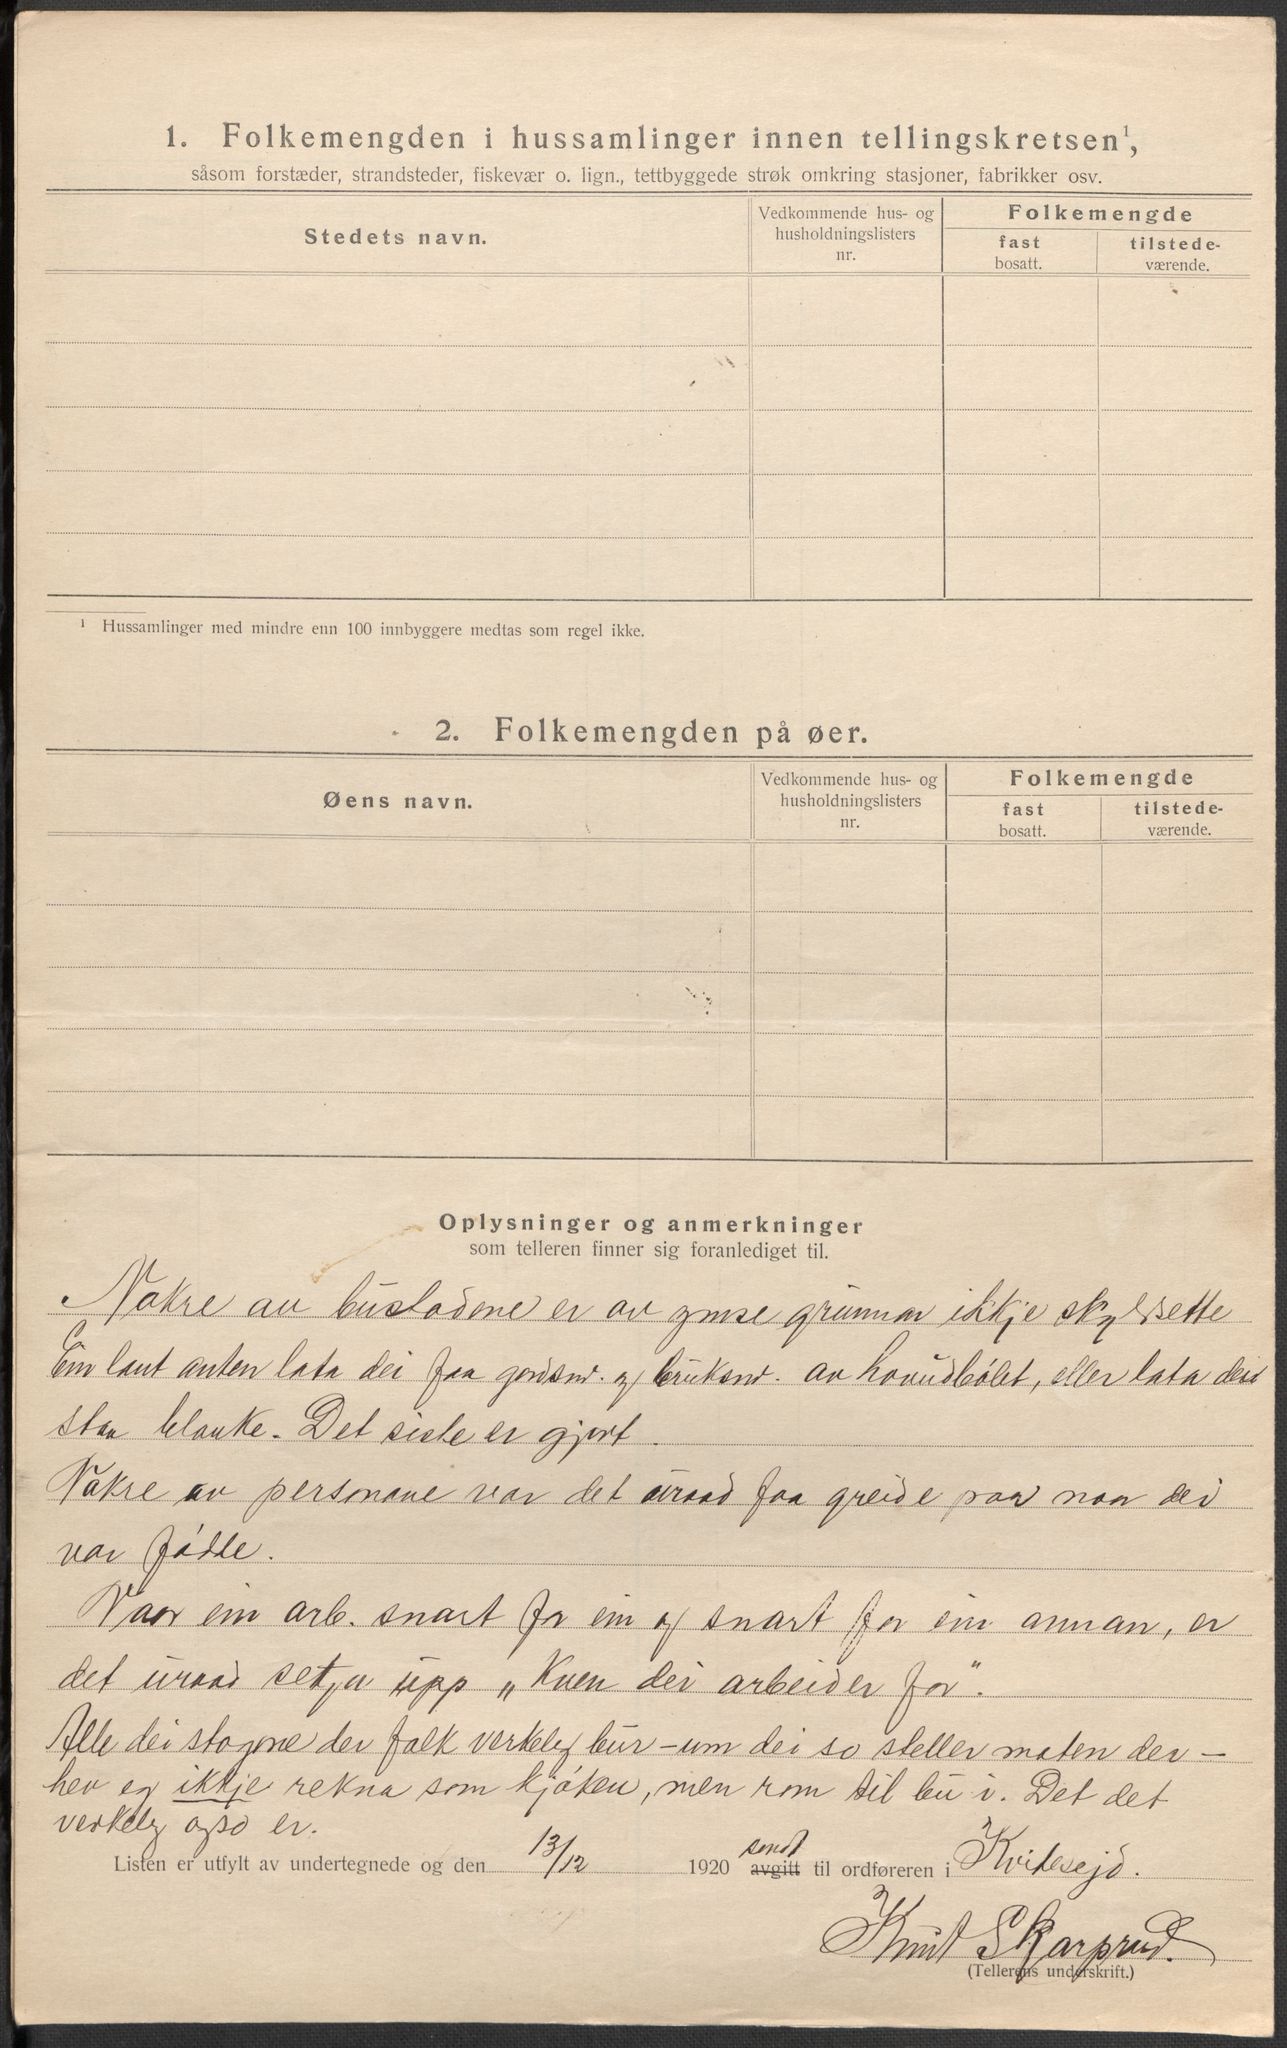 1. Folkemengden i hussamlinger innen tellingskretsen¹,
såsom forstæder, strandsteder, fiskevær o. lign., tettbyggede strøk omkring stasjoner, fabrikker osv.
Stedets navn.
Vedkommende hus- og
husholdningslisters
nr.
Folkemengde
fast
bosatt.
tilstede-
værende.
¹ Hussamlinger med mindre enn 100 innbyggere medtas som regel ikke.
2. Folkemengden på øer.
Øens navn.
Vedkommende hus- og
husholdningslisters
nr.
Folkemengde
fast
bosatt.
tilstede-
værende.
Oplysninger og anmerkninger
som telleren finner sig foranlediget til.
Nokre av bustadene er av ymse grunnar ikkje skyldsette
Ein laut anten lata dei faa gardsnr. og bruksnr. av hovudbólet, eller lata dei
staa blanke. Det siste er gjort.
Nokre av personane var det uraad faa greide paa naar dei
var fódde.
Naar ein arb. snart for ein og snart for ein annan, er
det uraad setja upp „Kven dei arbeider for".
Alle dei stogone der folk verkeleg bur - um dei so steller maten der -
hev eg ikkje rekna som kjóken, men rom til bu i. Det det
verkeleg ogso er.
Listen er utfylt av undertegnede og den 13/12 1920 avgitt sendt til ordføreren i Kvitesejd.
Knut Skarprud.
(Tellerens underskrift.)